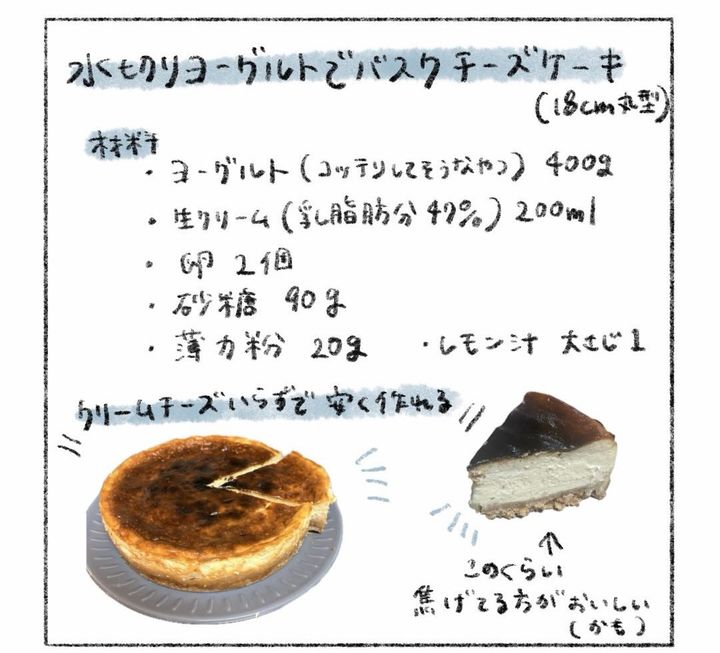 水切りヨーグルトでバスクチーズケーキ
(18cm丸型)
材料
・ヨーグルト(コッテリしてそうなやつ) 400g
・生クリーム(乳脂肪分47%) 200ml
・卵 2個
・砂糖 90g
・薄力粉 20g ・レモン汁 大さじ1
クリームチーズいらずで安く作れる
↑
このくらい
焦げてる方がおいしい
(かも)